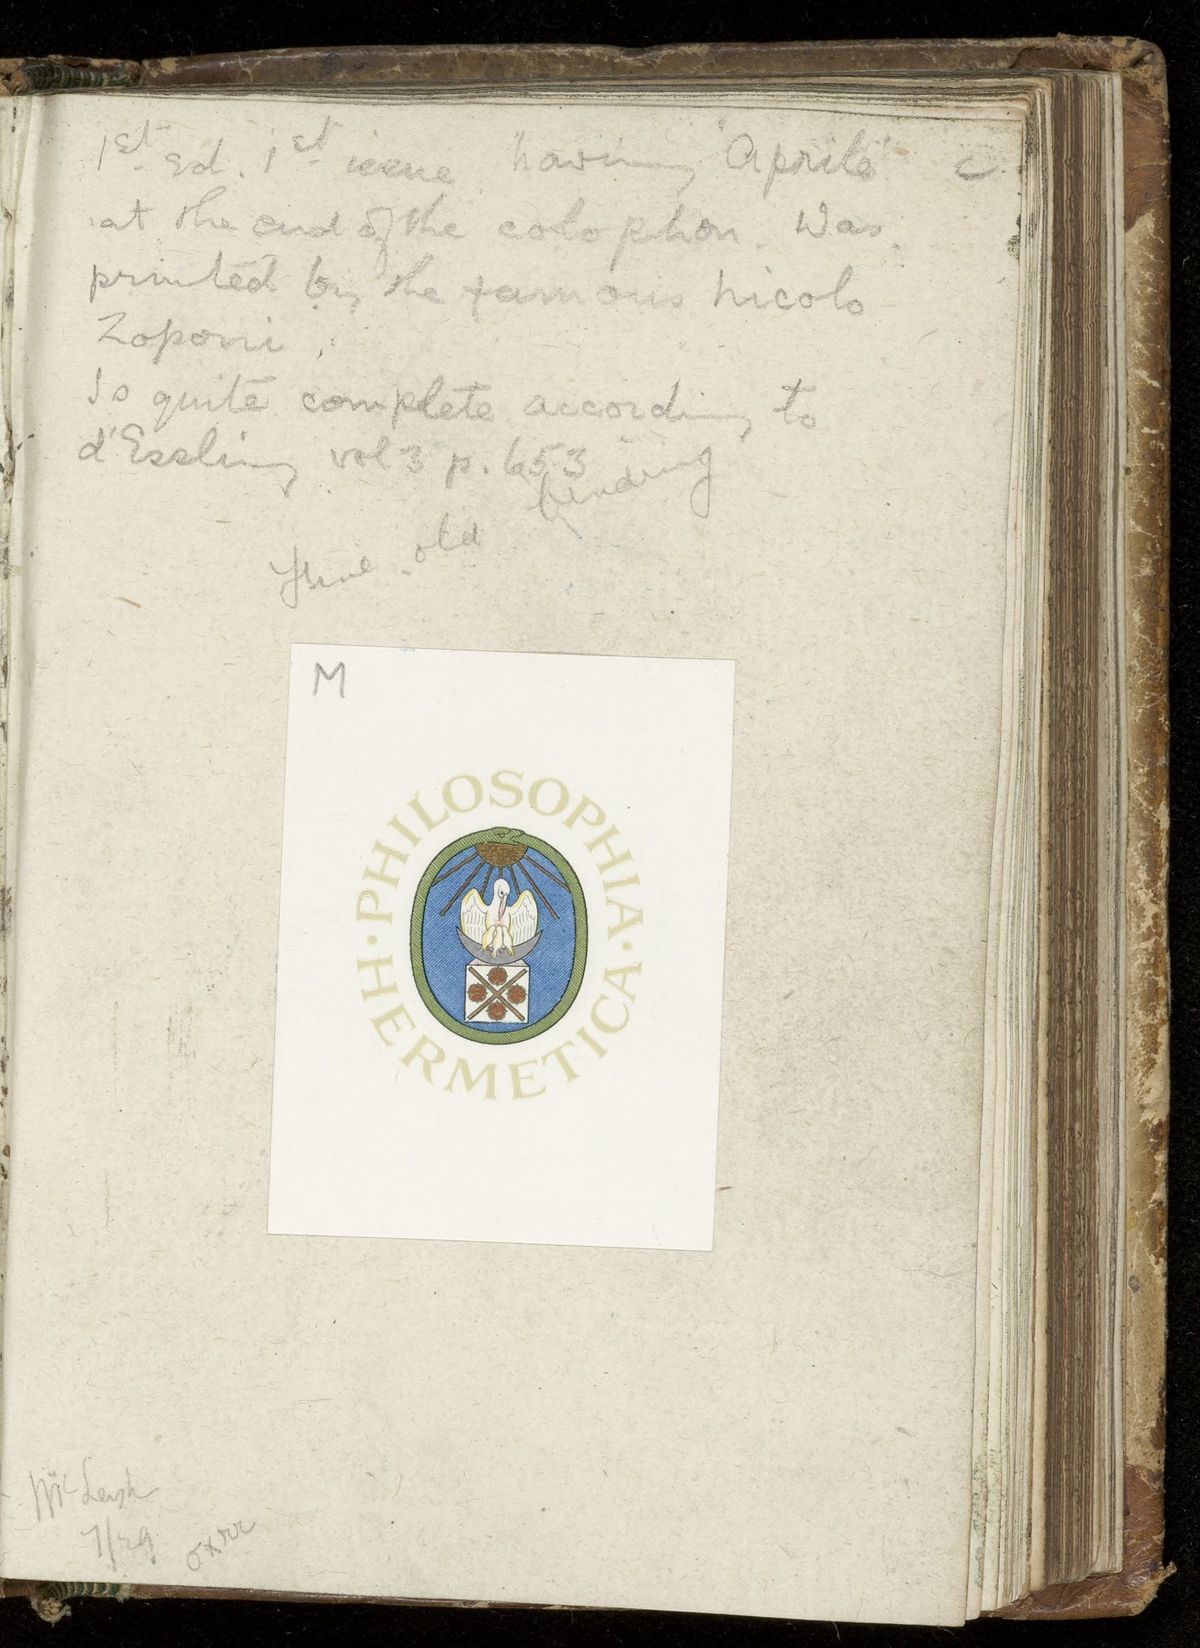 1st Ed. 1st issue having "Aprile" C
at the end of the colophon. Was
printed by the famous Nicolo
Zoponi.
Is quite complete according to
d'Essling vol 3 p. 653
Fine old binding
M
· PHILOSOPHIA · HERMETICA
McLeish
7/29